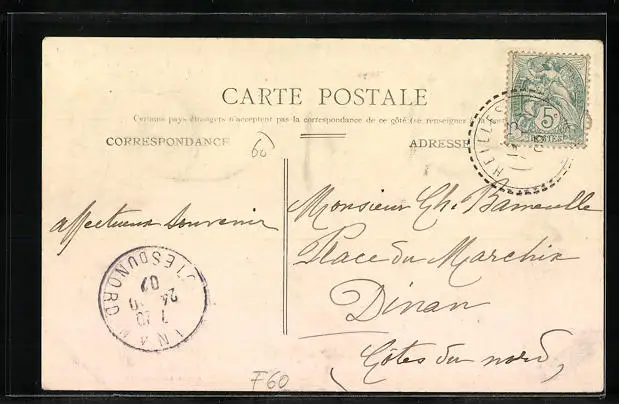 CARTE POSTALE
Certains pays étrangers n'acceptent pas la correspondance de ce côté (se renseigner à la
CORRESPONDANCE
ADRESSE
60
5c
POSTES
HEILLES
affectueux souvenir
Monsieur Ch.
Place du
Dinan
(Côtes du nord)
NAN
TES DU NORD
7 10
24
07
F60